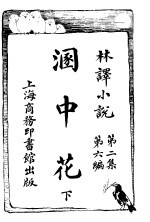 林譯小說
第二集
第六編
溷中花
下
上海商務印書館出版